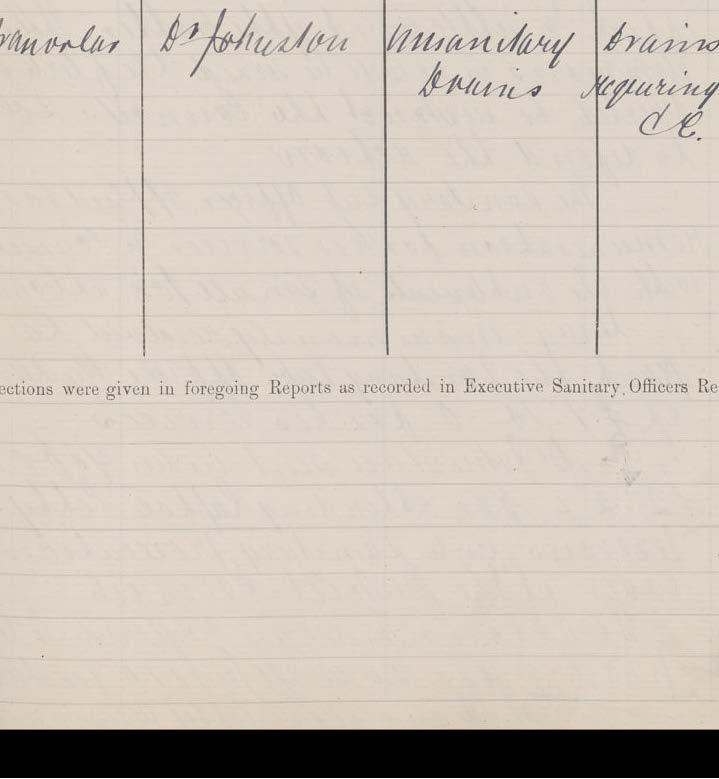 Dr Johnston Unsanitary Drains
Drains requiring
&c.
ections were given in foregoing Reports as recorded in Executive Sanitary Officers Re